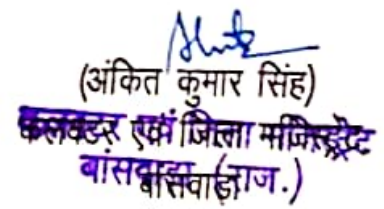 (अंकित कुमार सिंह)
कलक्टर एवं जिला मजिस्ट्रेट
बांसवाड़ा (राज.)
बांसवाड़ा